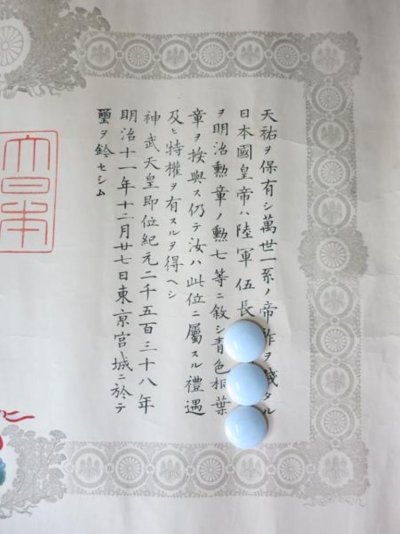 天祐ヲ保有シ萬世一系ノ帝祚ヲ踐タル
日本國皇帝ハ陸軍伍長
ヲ明治勲章ノ勲七等ニ敍シ青色桐葉
章ヲ授與ス仍テ汝ハ此位ニ屬スル禮遇
及ヒ特權ヲ有スルヲ得ヘシ
神武天皇即位紀元二千五百三十八年
明治十一年十二月廿七日東京宮城ニ於テ
璽ヲ鈐セシム
大日本